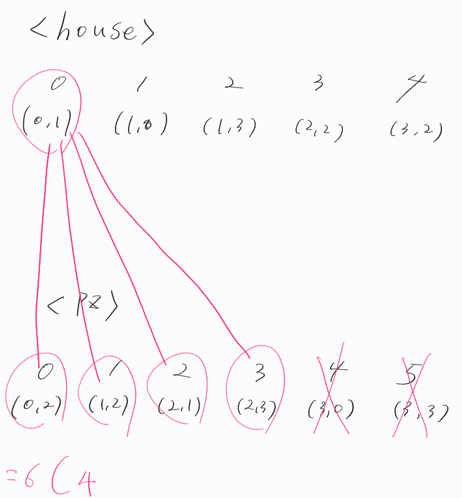 <house>
0 1 2 3 4
(0,1) (1,0) (1,3) (2,2) (3,2)
<PZ>
0 1 2 3 4 5
(0,2) (1,2) (2,1) (2,3) (3,0) (3,3)
=6(4